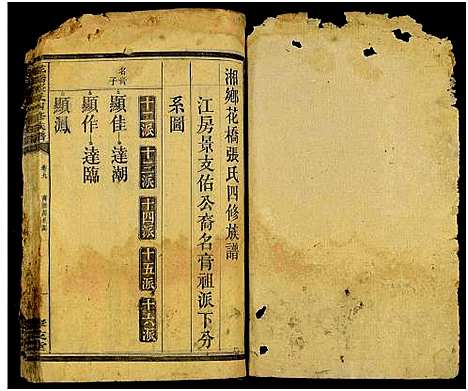 湘鄉花橋張氏四修族譜
江房景支佑公裔名膏祖派下分
系圖
十二派 十三派 十四派 十五派 十六派
名膏子
顯佳 達潮
顯作 達臨
顯渢
卷九